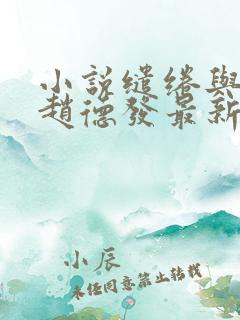 小說繾綣與
趙德發最新
小辰
未經同意禁止轉載